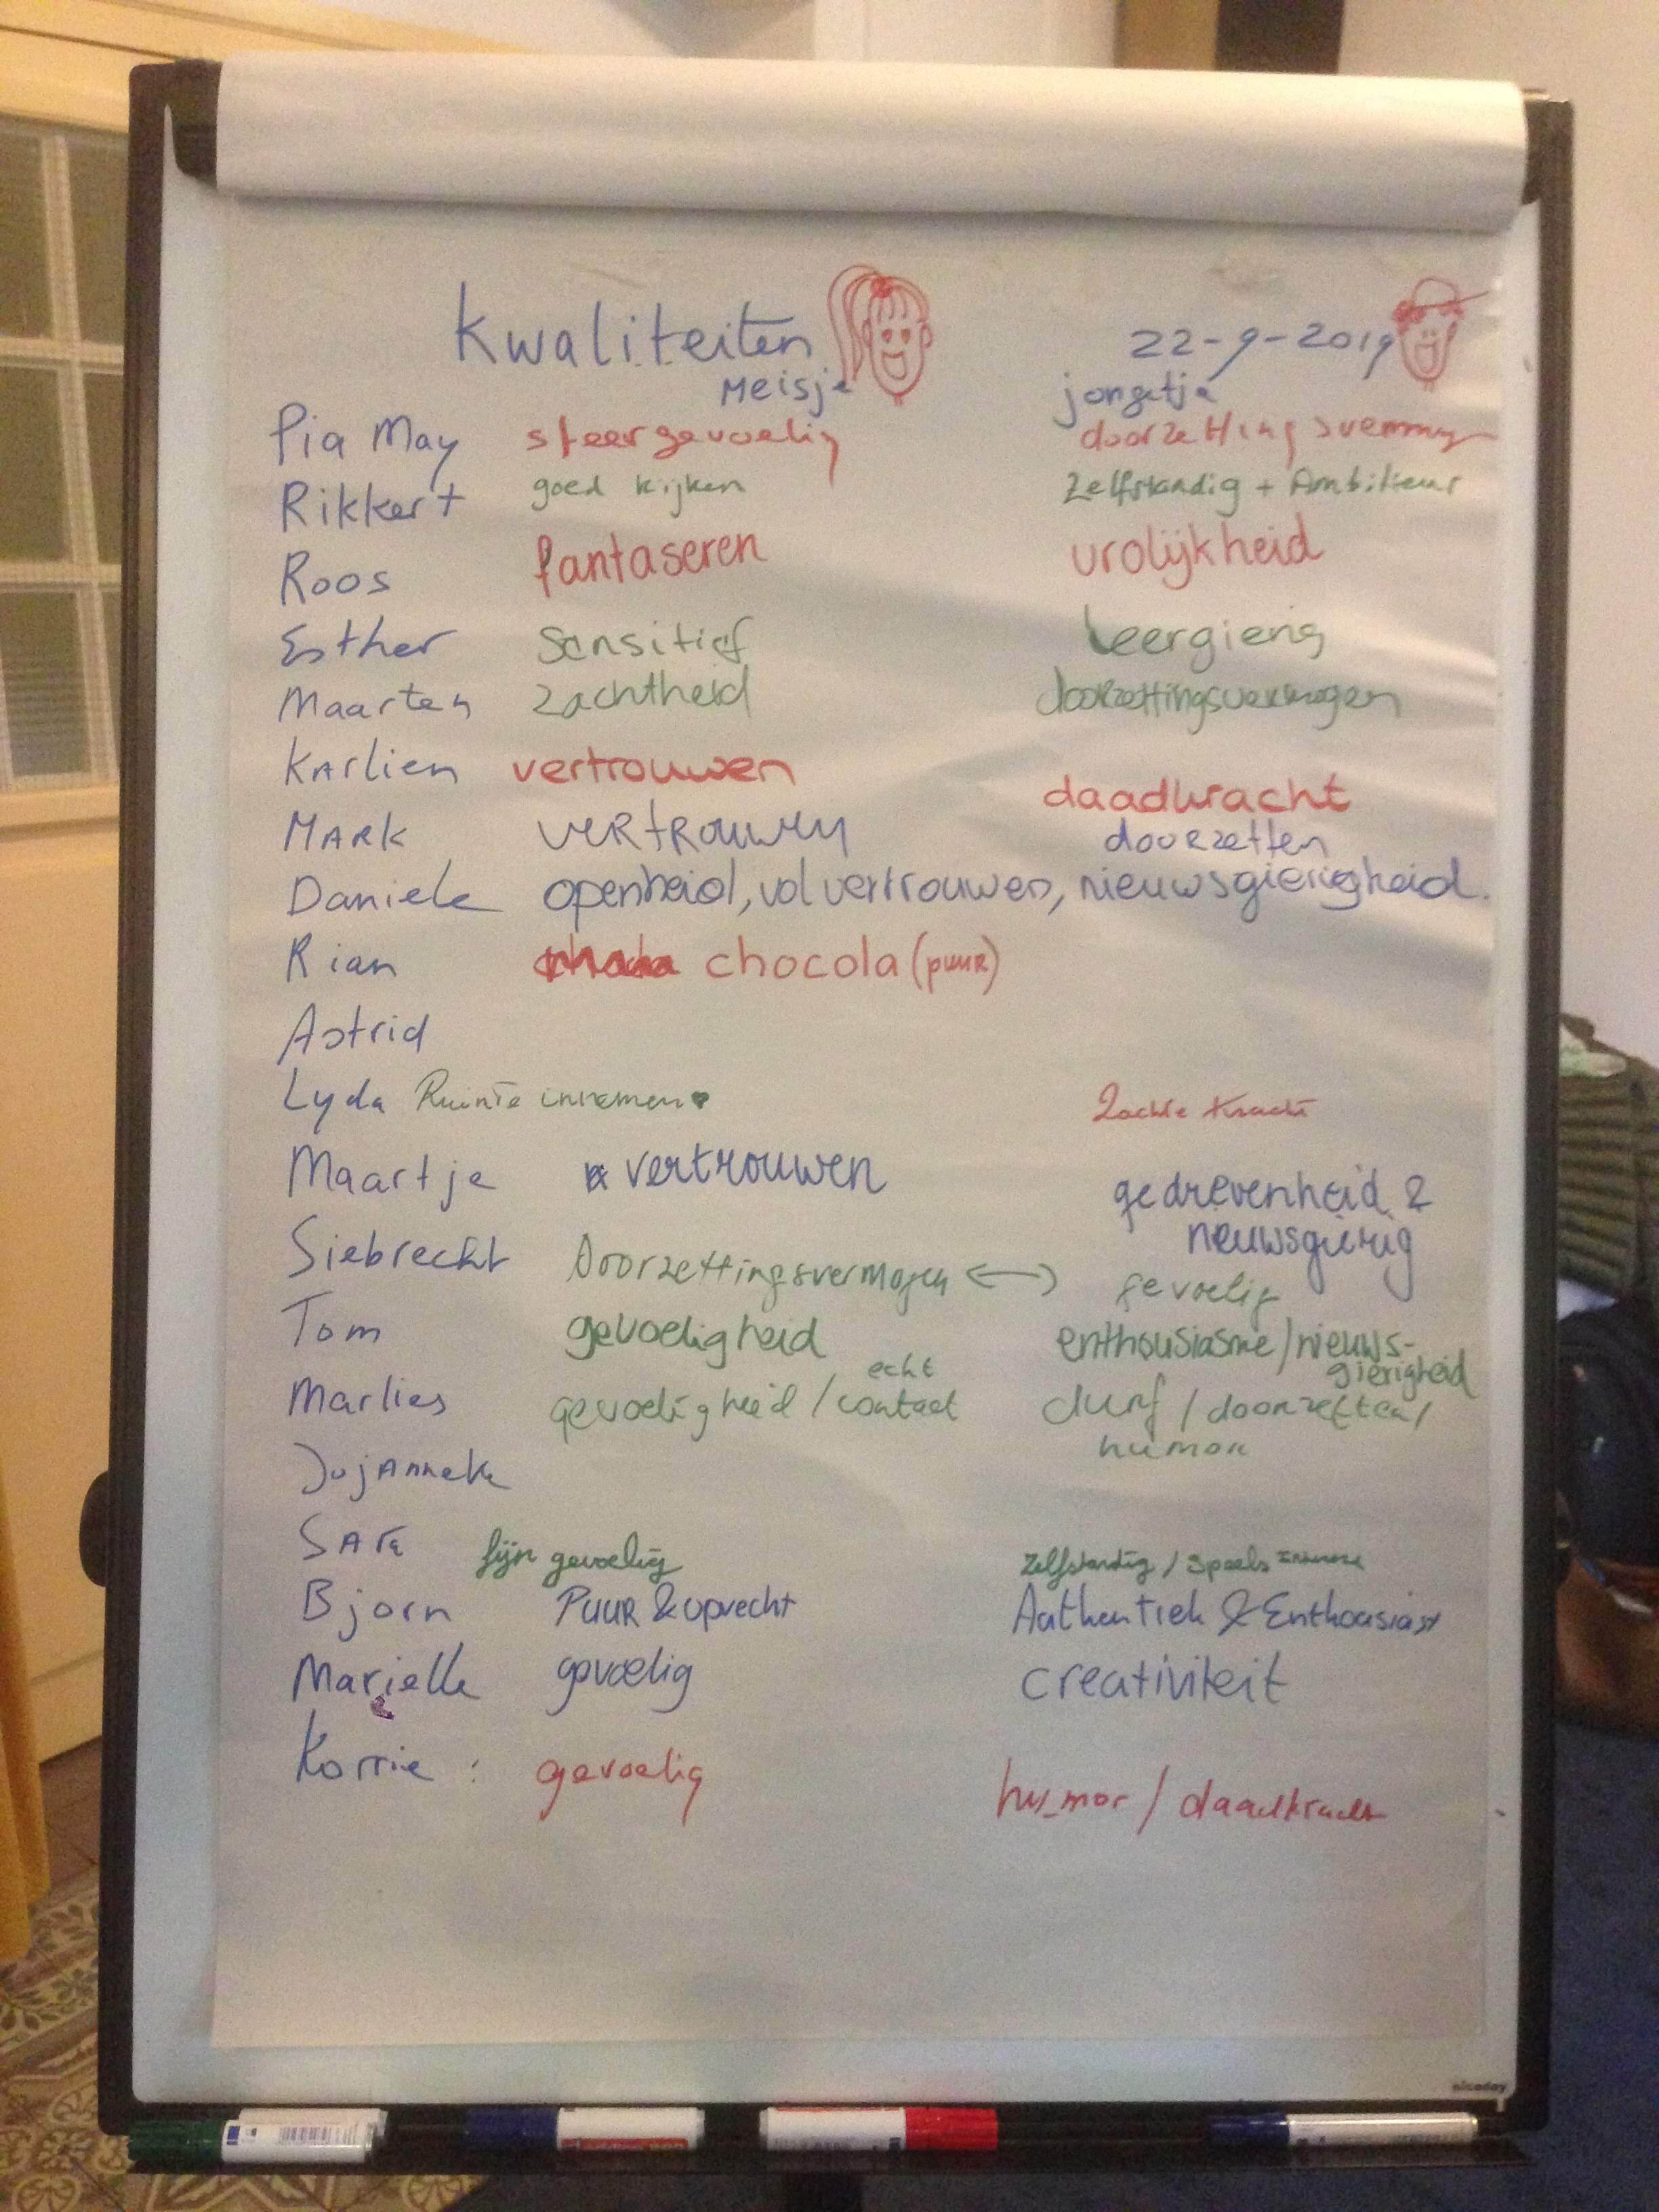 Kwaliteiten 22-9-2019
Meisje jongetje
Pia May sfeergevoelig doorzettingsvermog
Rikkert goed kijken Zelfstandig + Ambitieus
Roos fantaseren vrolijkheid
Esther Sensitief Leergierig
Maarten zachtheid doorzettingsvermogen
Karlien vertrouwen daadkracht
MARK VERTROUWEN doorzetten
Daniele openheid, vol vertrouwen, nieuwsgierigheid.
Rian chocola (puur)
Astrid
Lyda Ruimte innemen Zachte Kracht
Maartje vertrouwen gedrevenheid &
nieuwsgierig
Siebrecht Doorzettingsvermogen <-> gevoelig
Tom gevoeligheid enthousiasme/nieuws-
gierigheid
Marlies gevoeligheid / echt contact durf / doorzetten /
humor
Jojanneke
SARA fijn gevoelig Zelfstandig / Speels
Bjorn PUUR & oprecht Authentiek & Enthousiast
Marielle gevoelig creativiteit
Korrie : gevoelig humor / daadkracht
niceday